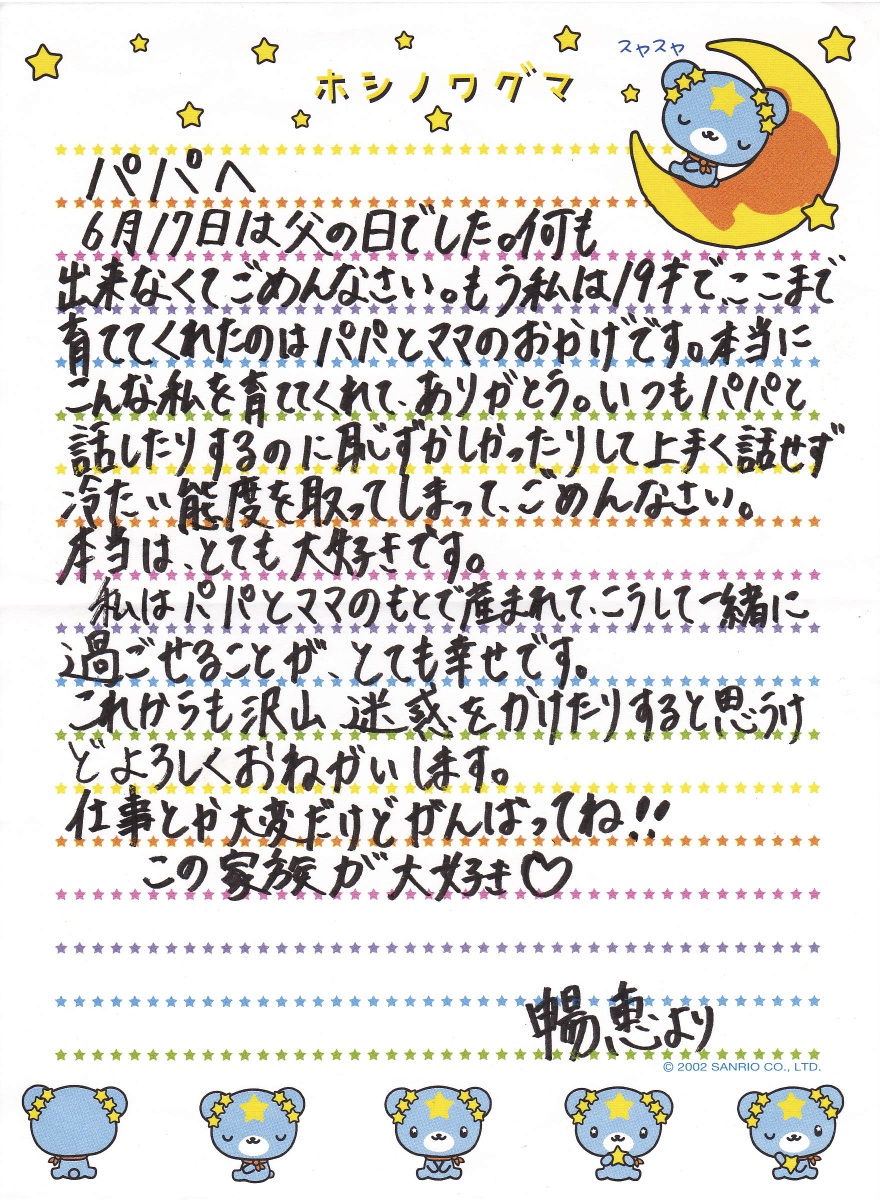 スヤスヤ
ホシノワグマ
パパへ
6月17日は父の日でした。何も
出来なくてごめんなさい。もう私は19才で、ここまで
育ててくれたのはパパとママのおかげです。本当に
こんな私を育ててくれて、ありがとう。いつもパパと
話したりするのに恥ずかしかったりして上手く話せず
冷たい態度を取ってしまって、ごめんなさい。
本当は、とても大好きです。
私はパパとママのもとで産まれて、こうして一緒に
過ごせることが、とても幸せです。
これからも沢山迷惑をかけたりすると思うけ
どよろしくおねがいします。
仕事とか大変だけどがんばってね!!
この家族が大好き♡
暢恵より
© 2002 SANRIO CO., LTD.